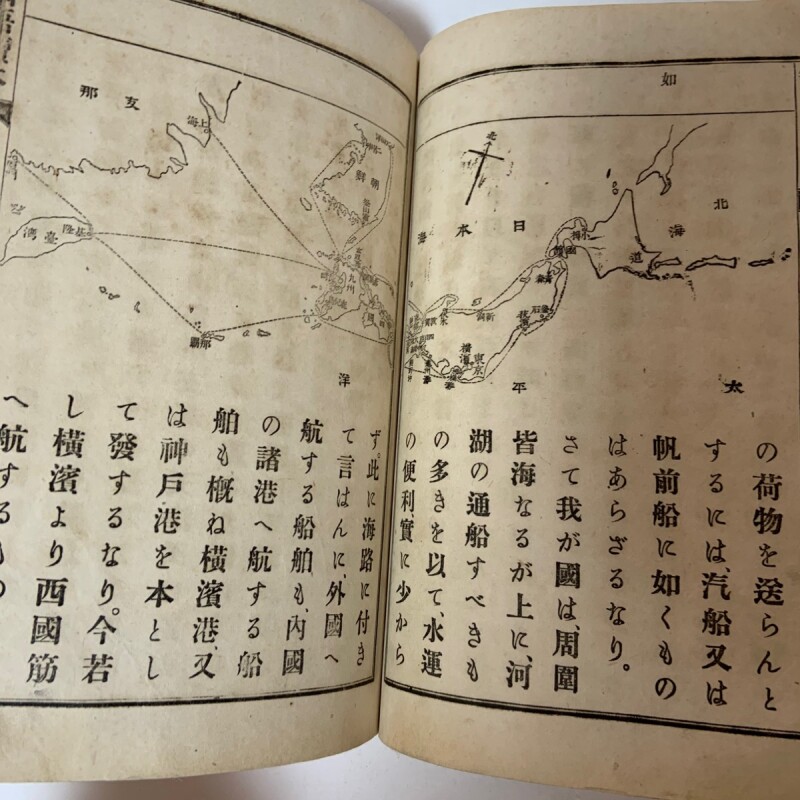 如
北
北
海
道
小樽
日本海
東京
橫濱
太
平
洋
の荷物を送らんと
するには、汽船又は
帆前船に如くもの
はあらざるなり。
さて我が國は、周圍
皆海なるが上に、河
湖の通船すべきも
の多きを以て、水運
の便利、實に少から
支那
上海
朝鮮
九州
臺灣
基隆
那覇
ず。此に海路に付き
て言はんに、外國へ
航する船舶も、內國
の諸港へ航する船
舶も概ね橫濱港、又
は神戶港を本とし
て發するなり。今若
し橫濱より西國筋
へ航するもの